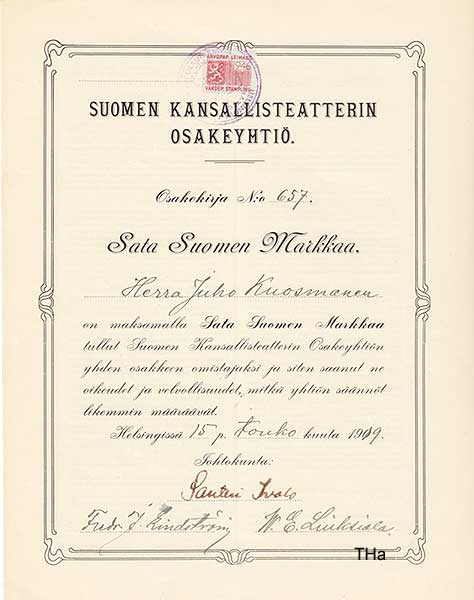 ARVOPAP. LEIMAUS
1946
VÄRDEP. STÄMPLING
SUOMEN KANSALLISTEATTERIN
OSAKEYHTIÖ.
Osakekirja N:o 657.
Sata Suomen Markkaa.
Herra Juho Kuosmanen
on maksamalla Sata Suomen Markkaa
tullut Suomen Kansallisteatterin Osakeyhtiön
yhden osakkeen omistajaksi ja siten saanut ne
oikeudet ja velvollisuudet, mitkä yhtiön säännöt
likemmin määräävät.
Helsingissä 15 p. touko kuuta 1909.
Johtokunta:
Santeri Ivalo
Fredr. J. Lindström W. E.
THa